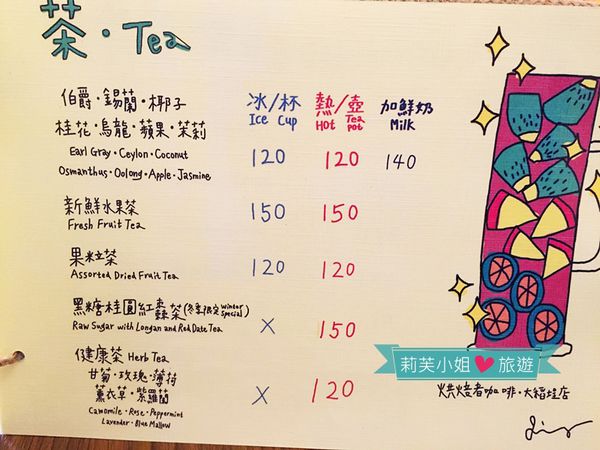 茶・Tea
伯爵・錫蘭・椰子
桂花・烏龍・蘋果・茉莉
Earl Gray・Ceylon・Coconut
Osmanthus・Oolong・Apple・Jasmine
冰/杯 熱/壺 加鮮奶
Ice Cup Hot Tea pot Milk
120 120 140
新鮮水果茶
Fresh Fruit Tea
150 150
果粒茶
Assorted Dried Fruit Tea
120 120
黑糖桂圓紅棗茶(冬季限定 winter special)
Raw Sugar with Longan and Red Date Tea
X 150
健康茶 Herb Tea
甘菊・玫瑰・薄荷
薰衣草・紫羅蘭
Camomile・Rose・Peppermint
Lavender・Blue Mallow
X 120
莉芙小姐 旅遊
烘焙者咖啡・大稻埕店